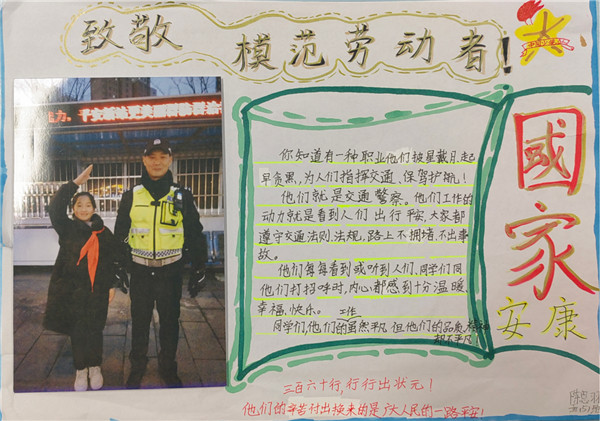 致敬
模范劳动者！
你知道有一种职业他们披星戴月、起
早贪黑，为人们指挥交通、保驾护航！
他们就是交通警察。他们工作的
动力就是看到人们出行平安，大家都
遵守交通法则、法规，路上不拥堵、不出事
故。
他们每每看到或听到人们、同学们同
他们打招呼时，内心都感到十分温暖、
幸福、快乐。
同学们，他们的工作虽然平凡但他们的品质、精神
却不平凡！
國家
安康
三百六十行，行行出状元！
他们的辛苦付出换来的是广大人民的一路平安！